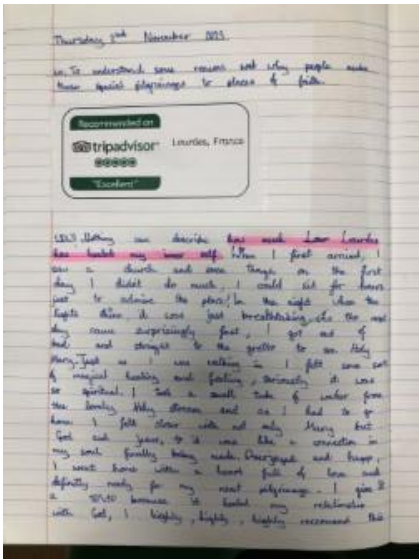 Thursday 2nd November 2023
L.O. To understand some reasons why people make
these special pilgrimages to places of faith.
Recommended on
tripadvisor
Lourdes, France
"Excellent"
Nothing can describe how much Lourdes
has healed my inner self. When I first arrived, I
saw a church and some things on the first
day I didn't do much, I could sit for hours
just to admire the place! In the night when the
lights shine, it was just breathtaking. As the next
day came surprisingly fast, I got out of
bed and straight to the grotto to see Holy
Mary. Just as I was walking in I felt some sort
of magical healing and feeling, seriously it was
so spiritual. I took a small tube of water from
the lovely Holy stream and as I had to go
home I felt closer with not only Mary but
God and Jesus, it was like a connection in
my soul finally being made. Overjoyed and happy,
I went home with a heart full of love and
definitly ready for my next pilgrimage. I give it
a 10/10 because it healed my relationship
with God, I highly, highly, highly recommend this